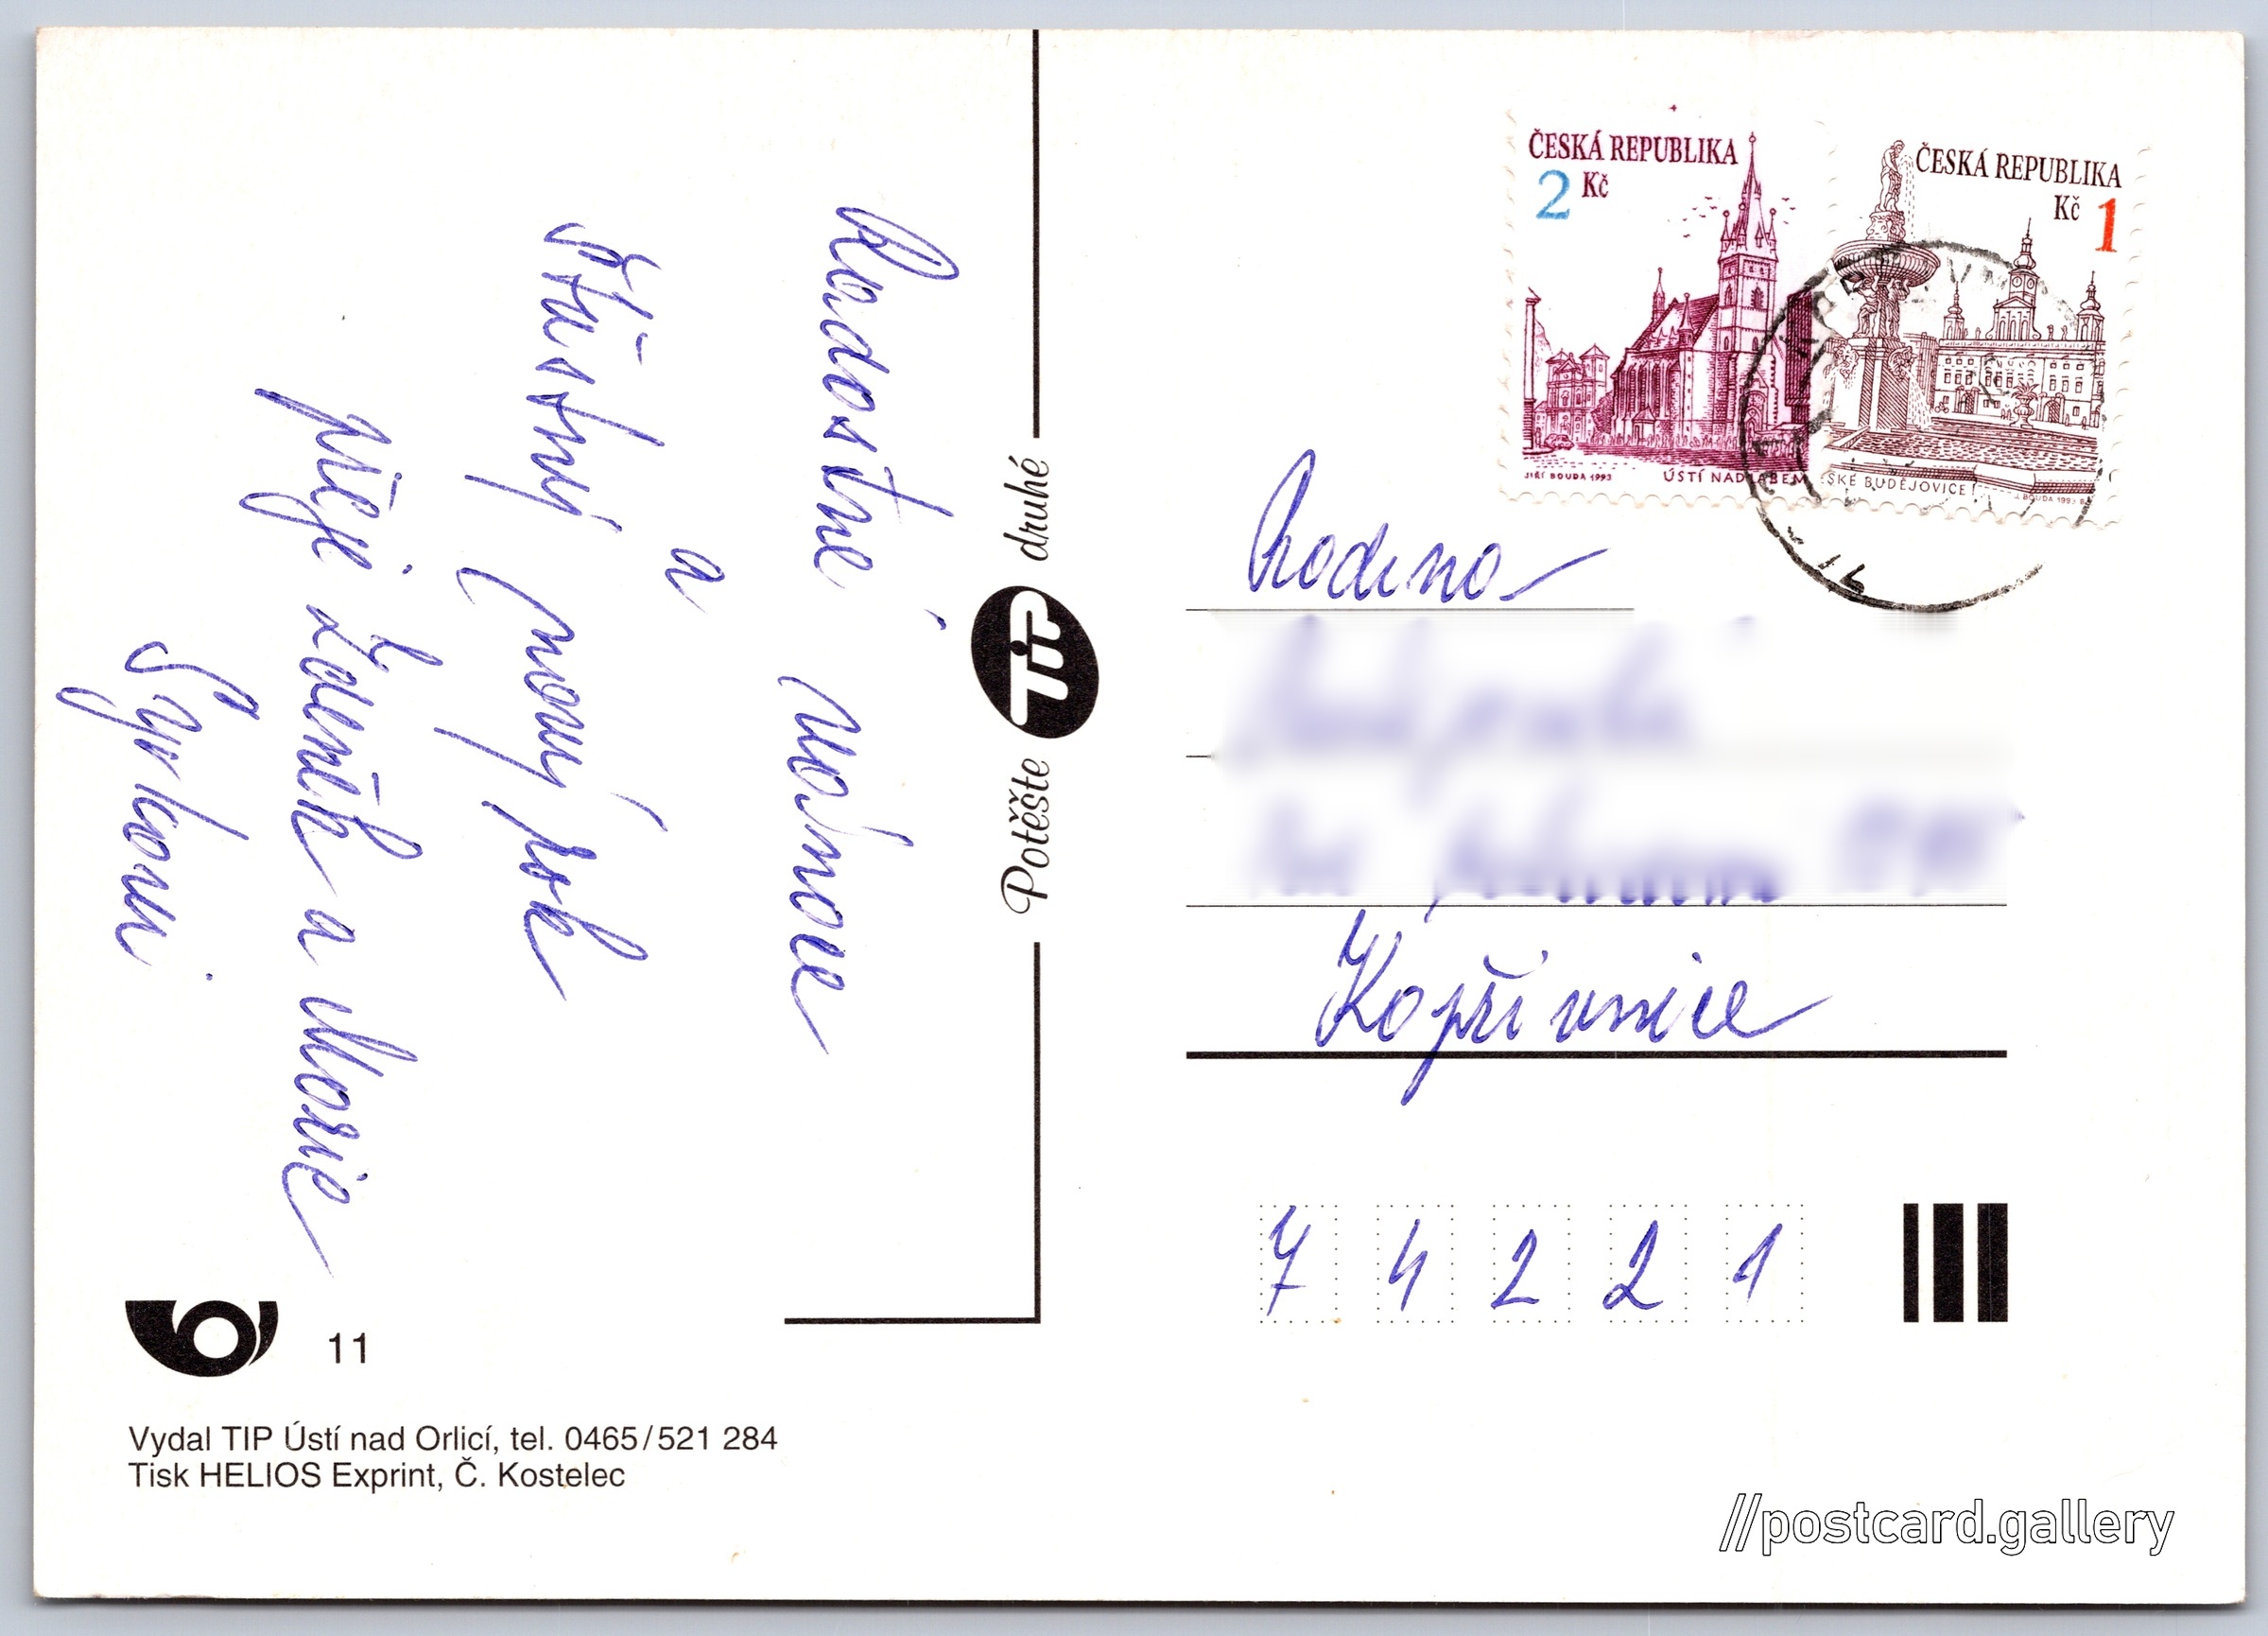 Radostné vánoce
a
Šťastný nový rok
přeje Zdeněk a Marie
Sýkorovi
Potěšte TIP druhé
ČESKÁ REPUBLIKA
2 Kč
JIŘÍ BOUDA 1993 ÚSTÍ NAD LABEM
ČESKÁ REPUBLIKA
Kč 1
ČESKÉ BUDĚJOVICE J. BOUDA 1993
Rodina
Kopřivnice
7 4 2 2 1
11
Vydal TIP Ústí nad Orlicí, tel. 0465/521 284
Tisk HELIOS Exprint, Č. Kostelec
//postcard.gallery